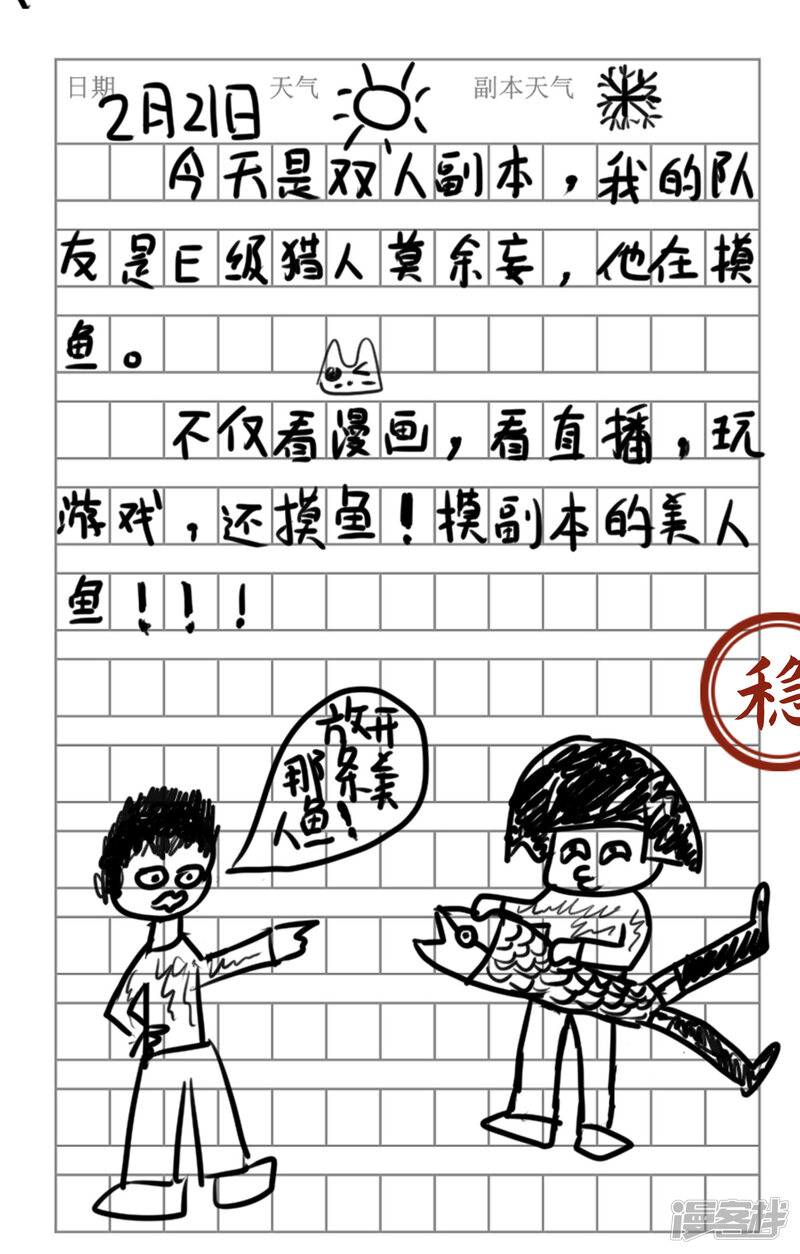 日期 2月21日 天气 副本天气
今天是双人副本，我的队
友是E级猎人莫余妄，他在摸
鱼。
不仅看漫画，看直播，玩
游戏，还摸鱼！摸副本的美人
鱼！！！
稳
放开
那条美
人鱼！
漫客栈